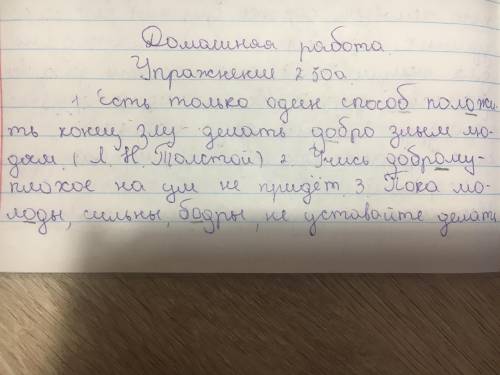 Домашняя работа
Упражнение 250а.
1. Есть только один способ положи-
ть конец злу - делать добро злым лю-
дям. (Л. Н. Толстой) 2 Учись доброму-
плохое на ум не придёт. 3. Пока мо-
лоды, сильны, бодры, не уставайте делать